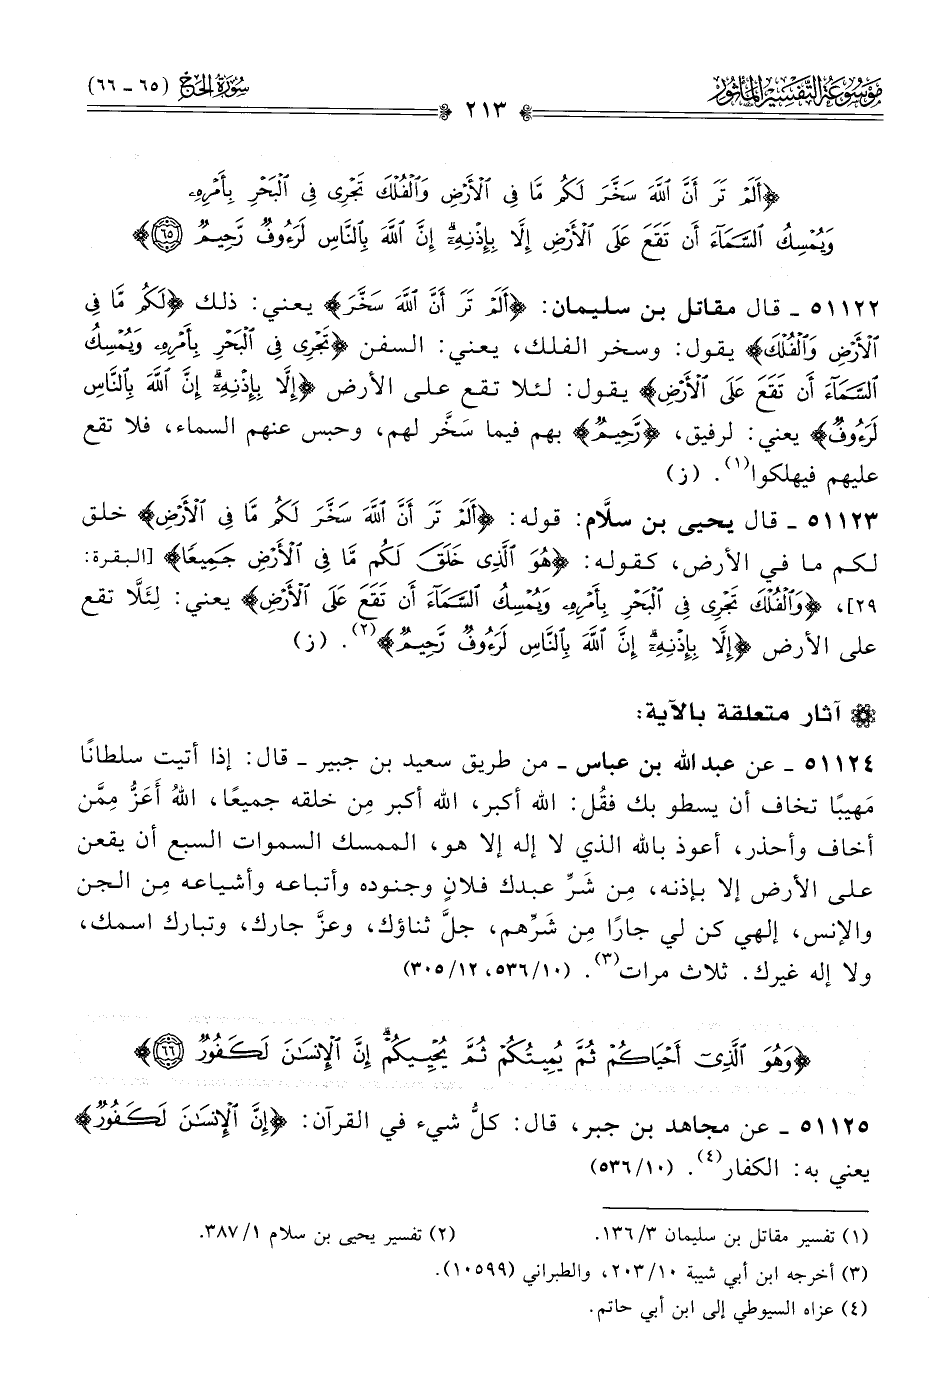 مَوْسُوعَة التَّفْسِيرِ المَأْثُور
سُورَةُ الحَجِّ (٦٥ - ٦٦)
٢١٣
﴿أَلَمْ تَرَ أَنَّ ٱللَّهَ سَخَّرَ لَكُم مَّا فِى ٱلْأَرْضِ وَٱلْفُلْكَ تَجْرِى فِى ٱلْبَحْرِ بِأَمْرِهِۦ
وَيُمْسِكُ ٱلسَّمَآءَ أَن تَقَعَ عَلَى ٱلْأَرْضِ إِلَّا بِإِذْنِهِۦٓ إِنَّ ٱللَّهَ بِٱلنَّاسِ لَرَءُوفٌ رَّحِيمٌ ٦٥﴾
٥١١٢٢ - قال مقاتل بن سليمان: ﴿أَلَمْ تَرَ أَنَّ ٱللَّهَ سَخَّرَ﴾ يعني: ذلك ﴿لَكُم مَّا فِى
ٱلْأَرْضِ وَٱلْفُلْكَ﴾ يقول: وسخر الفلك، يعني: السفن ﴿تَجْرِى فِى ٱلْبَحْرِ بِأَمْرِهِۦ وَيُمْسِكُ
ٱلسَّمَآءَ أَن تَقَعَ عَلَى ٱلْأَرْضِ﴾ يقول: لئلا تقع على الأرض ﴿إِلَّا بِإِذْنِهِۦٓ إِنَّ ٱللَّهَ بِٱلنَّاسِ
لَرَءُوفٌ﴾ يعني: لرفيق، ﴿رَّحِيمٌ﴾ بهم فيما سَخَّر لهم، وحبس عنهم السماء، فلا تقع
عليهم فيهلكوا(١). (ز)
٥١١٢٣ - قال يحيى بن سلَّام: قوله: ﴿أَلَمْ تَرَ أَنَّ ٱللَّهَ سَخَّرَ لَكُم مَّا فِى ٱلْأَرْضِ﴾ خلق
لكم ما في الأرض، كقوله: ﴿هُوَ ٱلَّذِى خَلَقَ لَكُم مَّا فِى ٱلْأَرْضِ جَمِيعًا﴾ [البقرة:
٢٩]، ﴿وَٱلْفُلْكَ تَجْرِى فِى ٱلْبَحْرِ بِأَمْرِهِۦ وَيُمْسِكُ ٱلسَّمَآءَ أَن تَقَعَ عَلَى ٱلْأَرْضِ﴾ يعني: لِئَلَّا تقع
على الأرض ﴿إِلَّا بِإِذْنِهِۦٓ إِنَّ ٱللَّهَ بِٱلنَّاسِ لَرَءُوفٌ رَّحِيمٌ﴾(٢). (ز)
آثار متعلقة بالآية:
٥١١٢٤ - عن عبد الله بن عباس - من طريق سعيد بن جبير - قال: إذا أتيت سلطانًا
مَهيبًا تخاف أن يسطو بك فقُل: الله أكبر، الله أكبر مِن خلقه جميعًا، اللهُ أعَزُّ مِمَّن
أخاف وأحذر، أعوذ بالله الذي لا إله إلا هو، الممسك السموات السبع أن يقعن
على الأرض إلا بإذنه، مِن شَرِّ عبدك فلانٍ وجنوده وأتباعه وأشياعه مِن الجن
والإنس، إلهي كن لي جارًا مِن شَرِّهم، جلَّ ثناؤك، وعزَّ جارك، وتبارك اسمك،
ولا إله غيرك. ثلاث مرات(٣). (١٠/٥٣٦، ١٢/٣٠٥)
﴿وَهُوَ ٱلَّذِىٓ أَحْيَاكُمْ ثُمَّ يُمِيتُكُمْ ثُمَّ يُحْيِيكُمْ إِنَّ ٱلْإِنسَٰنَ لَكَفُورٌ ٦٦﴾
٥١١٢٥ - عن مجاهد بن جبر، قال: كلُّ شيء في القرآن: ﴿إِنَّ ٱلْإِنسَٰنَ لَكَفُورٌ﴾
يعني به: الكفار(٤). (١٠/٥٣٦)
(١) تفسير مقاتل بن سليمان ٣/ ١٣٦.
(٢) تفسير يحيى بن سلام ١/ ٣٨٧.
(٣) أخرجه ابن أبي شيبة ١٠/ ٢٠٣، والطبراني (١٠٥٩٩).
(٤) عزاه السيوطي إلى ابن أبي حاتم.